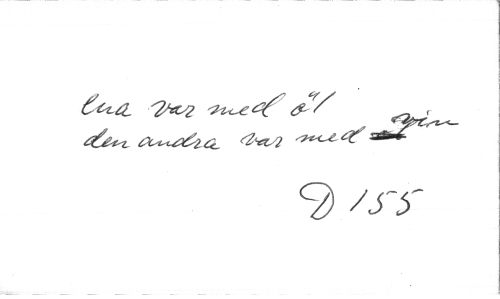 ena var med öl
den andra var med vin
D 155